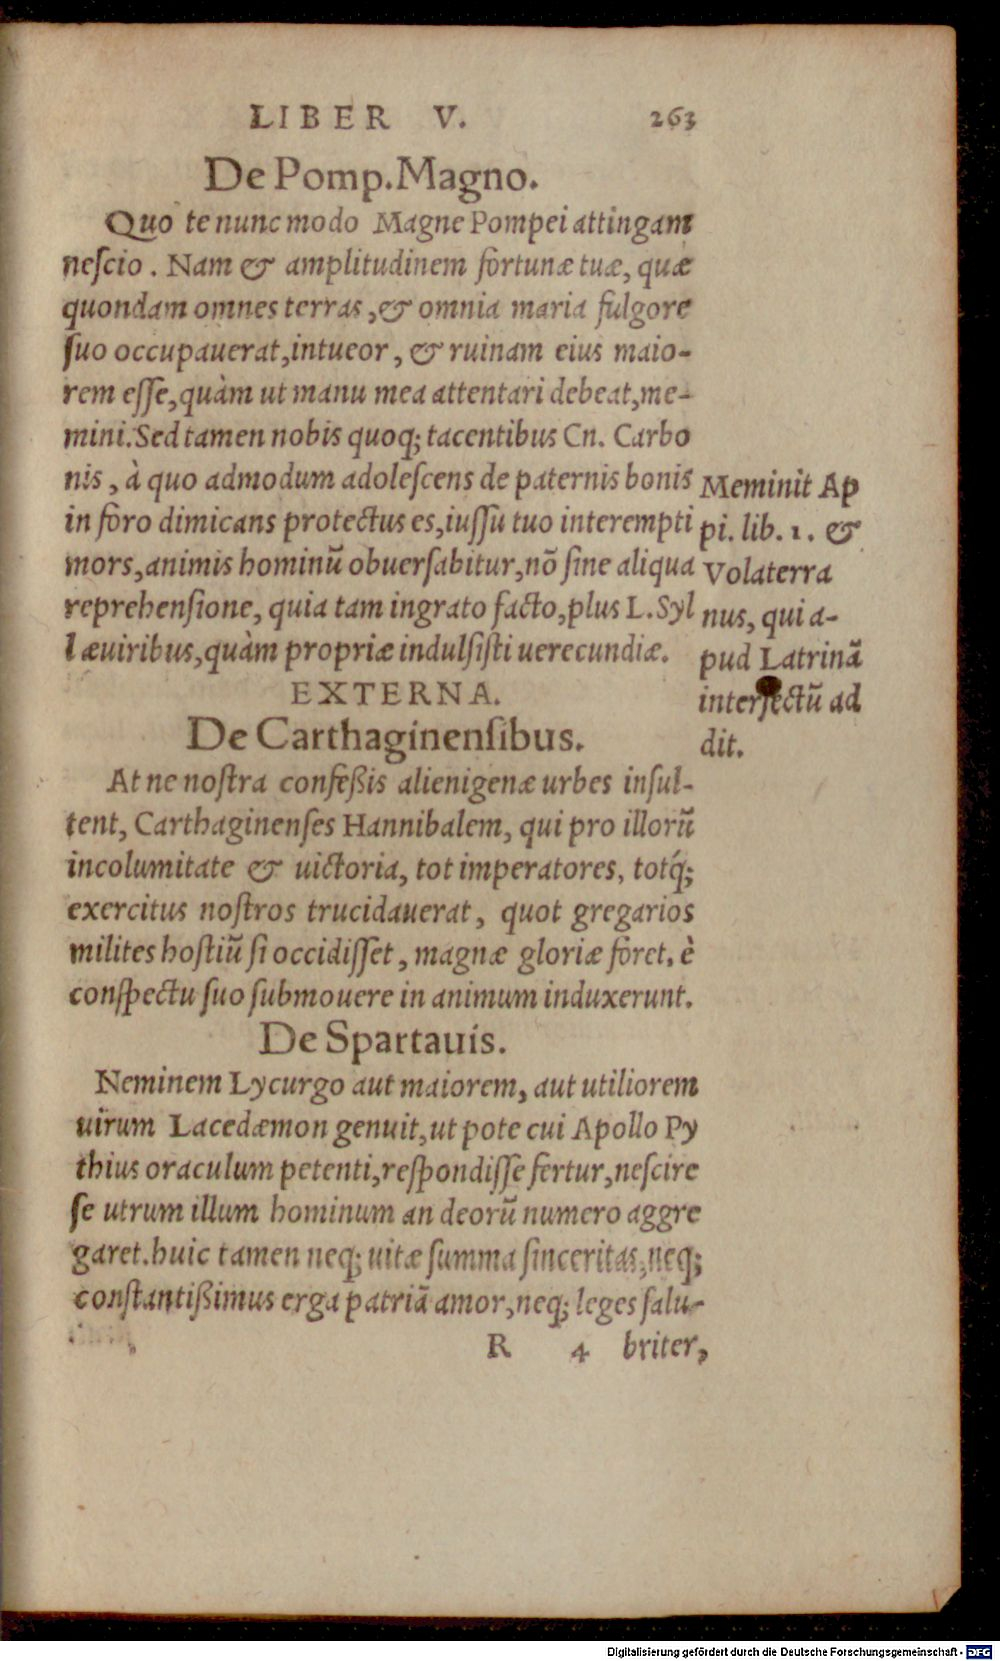 LIBER V. 263
De Pomp. Magno.
Quo te nunc modo Magne Pompei attingam
neſcio. Nam & amplitudinem fortunæ tuæ, quæ
quondam omnes terras, & omnia maria fulgore
ſuo occupauerat, intueor, & ruinam eius maio-
rem eſſe, quàm ut manu mea attentari debeat, me-
mini. Sed tamen nobis quoq; tacentibus Cn. Carbo
nis, à quo admodum adoleſcens de paternis bonis
in foro dimicans protectus es, iuſſu tuo interempti
mors, animis hominū obuerſabitur, nō ſine aliqua
reprehenſione, quia tam ingrato facto, plus L. Syl
læ uiribus, quàm propriæ indulſiſti uerecundiæ.
Meminit Ap
pi. lib. 1. &
Volaterra
nus, qui a-
pud Latrinā
interfectū ad
dit.
EXTERNA.
De Carthaginenſibus.
At ne noſtra confeßis alienigenæ urbes inſul-
tent, Carthaginenſes Hannibalem, qui pro illorū
incolumitate & uictoria, tot imperatores, totq́;
exercitus noſtros trucidauerat, quot gregarios
milites hoſtiū ſi occidiſſet, magnæ gloriæ foret, è
conſpectu ſuo ſubmouere in animum induxerunt.
De Spartauis.
Neminem Lycurgo aut maiorem, aut utiliorem
uirum Lacedæmon genuit, ut pote cui Apollo Py
thius oraculum petenti, reſpondiſſe fertur, neſcire
ſe utrum illum hominum an deorū numero aggre
garet. huic tamen neq; uitæ ſumma ſinceritas, neq;
conſtantißimus erga patriā amor, neq; leges ſalu-
R 4 briter,
Digitalisierung gefördert durch die Deutsche Forschungsgemeinschaft - DFG